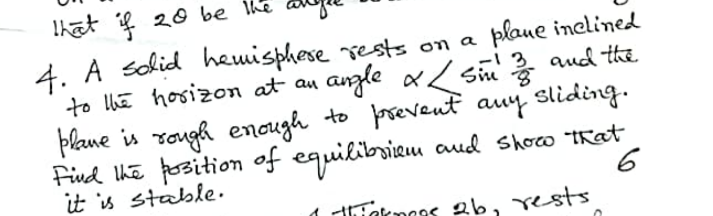 that if 2θ be the angle
4. A solid hemisphere rests on a plane inclined
to the horizon at an angle α < sin⁻¹ 3/8 and the
plane is rough enough to prevent any sliding.
Find the position of equilibrium and show that
it is stable. 6
thickness 2b, rests